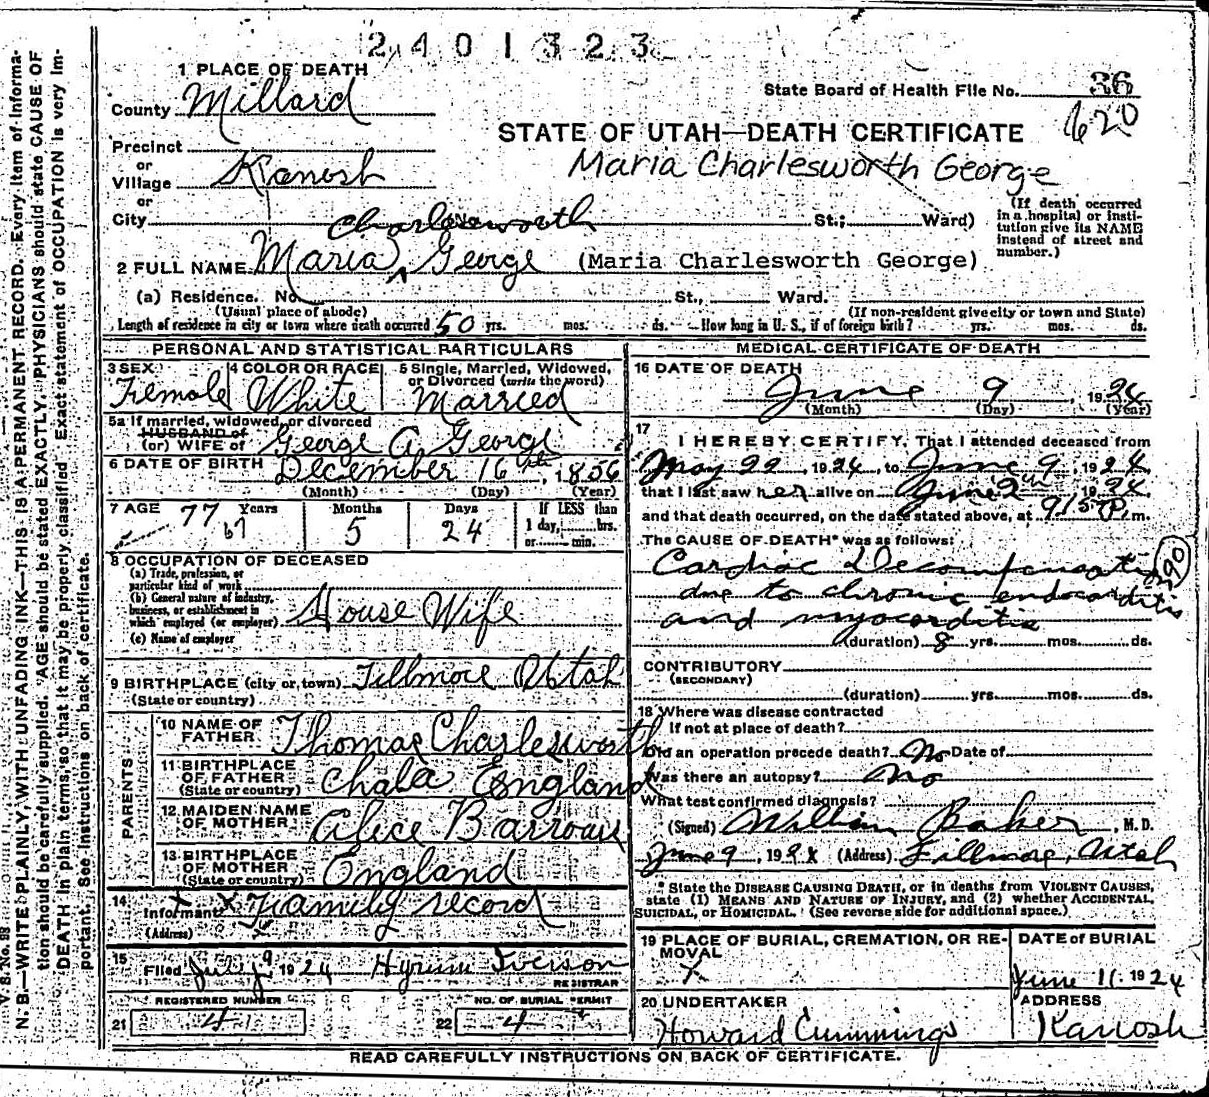 2401323
1 PLACE OF DEATH
County Millard
State Board of Health File No. 36
620
Precinct
or
Village Kanosh
or
City
STATE OF UTAH—DEATH CERTIFICATE
Maria Charlesworth George
St.; Ward)
(If death occurred in a hospital or institution give its NAME instead of street and number.)
Charlesworth
2 FULL NAME Maria ^ George (Maria Charlesworth George)
(a) Residence. No. St., Ward.
(Usual place of abode) (If non-resident give city or town and State)
Length of residence in city or town where death occurred 50 yrs. mos. ds. How long in U. S., if of foreign birth? yrs. mos. ds.
PERSONAL AND STATISTICAL PARTICULARS
3 SEX Female
4 COLOR OR RACE White
5 Single, Married, Widowed, or Divorced (write the word) Married
5a If married, widowed, or divorced
HUSBAND of
(or) WIFE of George A George
6 DATE OF BIRTH December 16th, 1856
(Month) (Day) (Year)
7 AGE 77 Years 67 Months 5 Days 24 If LESS than 1 day, hrs. or min.
8 OCCUPATION OF DECEASED
(a) Trade, profession, or particular kind of work
(b) General nature of industry, business, or establishment in which employed (or employer) House Wife
(c) Name of employer
9 BIRTHPLACE (city or town) Fillmore Utah
(State or country)
PARENTS
10 NAME OF FATHER Thomas Charlesworth
11 BIRTHPLACE OF FATHER England
(State or country)
12 MAIDEN NAME OF MOTHER Alice Barrows
13 BIRTHPLACE OF MOTHER England
(State or country)
14 Informant Family record
(Address)
15 Filed July 9 1924 Hyrum Iverson
REGISTRAR
REGISTERED NUMBER
21 4
NO. OF BURIAL PERMIT
22 4
MEDICAL CERTIFICATE OF DEATH
16 DATE OF DEATH
June 9, 1924
(Month) (Day) (Year)
17
I HEREBY CERTIFY, That I attended deceased from
May 22, 1924, to June 9, 1924,
that I last saw her alive on June 1924,
and that death occurred, on the date stated above, at 915 P. m.
The CAUSE OF DEATH* was as follows:
Cardiac Decompensation
due to chronic endocarditis
and myocarditis
90
(duration) 8 yrs. mos. ds.
CONTRIBUTORY
(SECONDARY)
(duration) yrs. mos. ds.
18 Where was disease contracted
If not at place of death?
Did an operation precede death? No Date of
Was there an autopsy? No
What test confirmed diagnosis?
(Signed) William Baker, M. D.
June 9, 1924 (Address) Fillmore, Utah
* State the DISEASE CAUSING DEATH, or in deaths from VIOLENT CAUSES, state (1) MEANS AND NATURE OF INJURY, and (2) whether ACCIDENTAL, SUICIDAL, or HOMICIDAL. (See reverse side for additional space.)
19 PLACE OF BURIAL, CREMATION, OR REMOVAL
X
DATE of BURIAL
June 11. 1924
20 UNDERTAKER
Howard Cummings
ADDRESS
Kanosh
READ CAREFULLY INSTRUCTIONS ON BACK OF CERTIFICATE.
V. S. No. 88
N. B.—WRITE PLAINLY, WITH UNFADING INK—THIS IS A PERMANENT RECORD. Every item of information should be carefully supplied. AGE should be stated EXACTLY. PHYSICIANS should state CAUSE OF DEATH in plain terms, so that it may be properly classified. Exact statement of OCCUPATION is very important. See instructions on back of certificate.